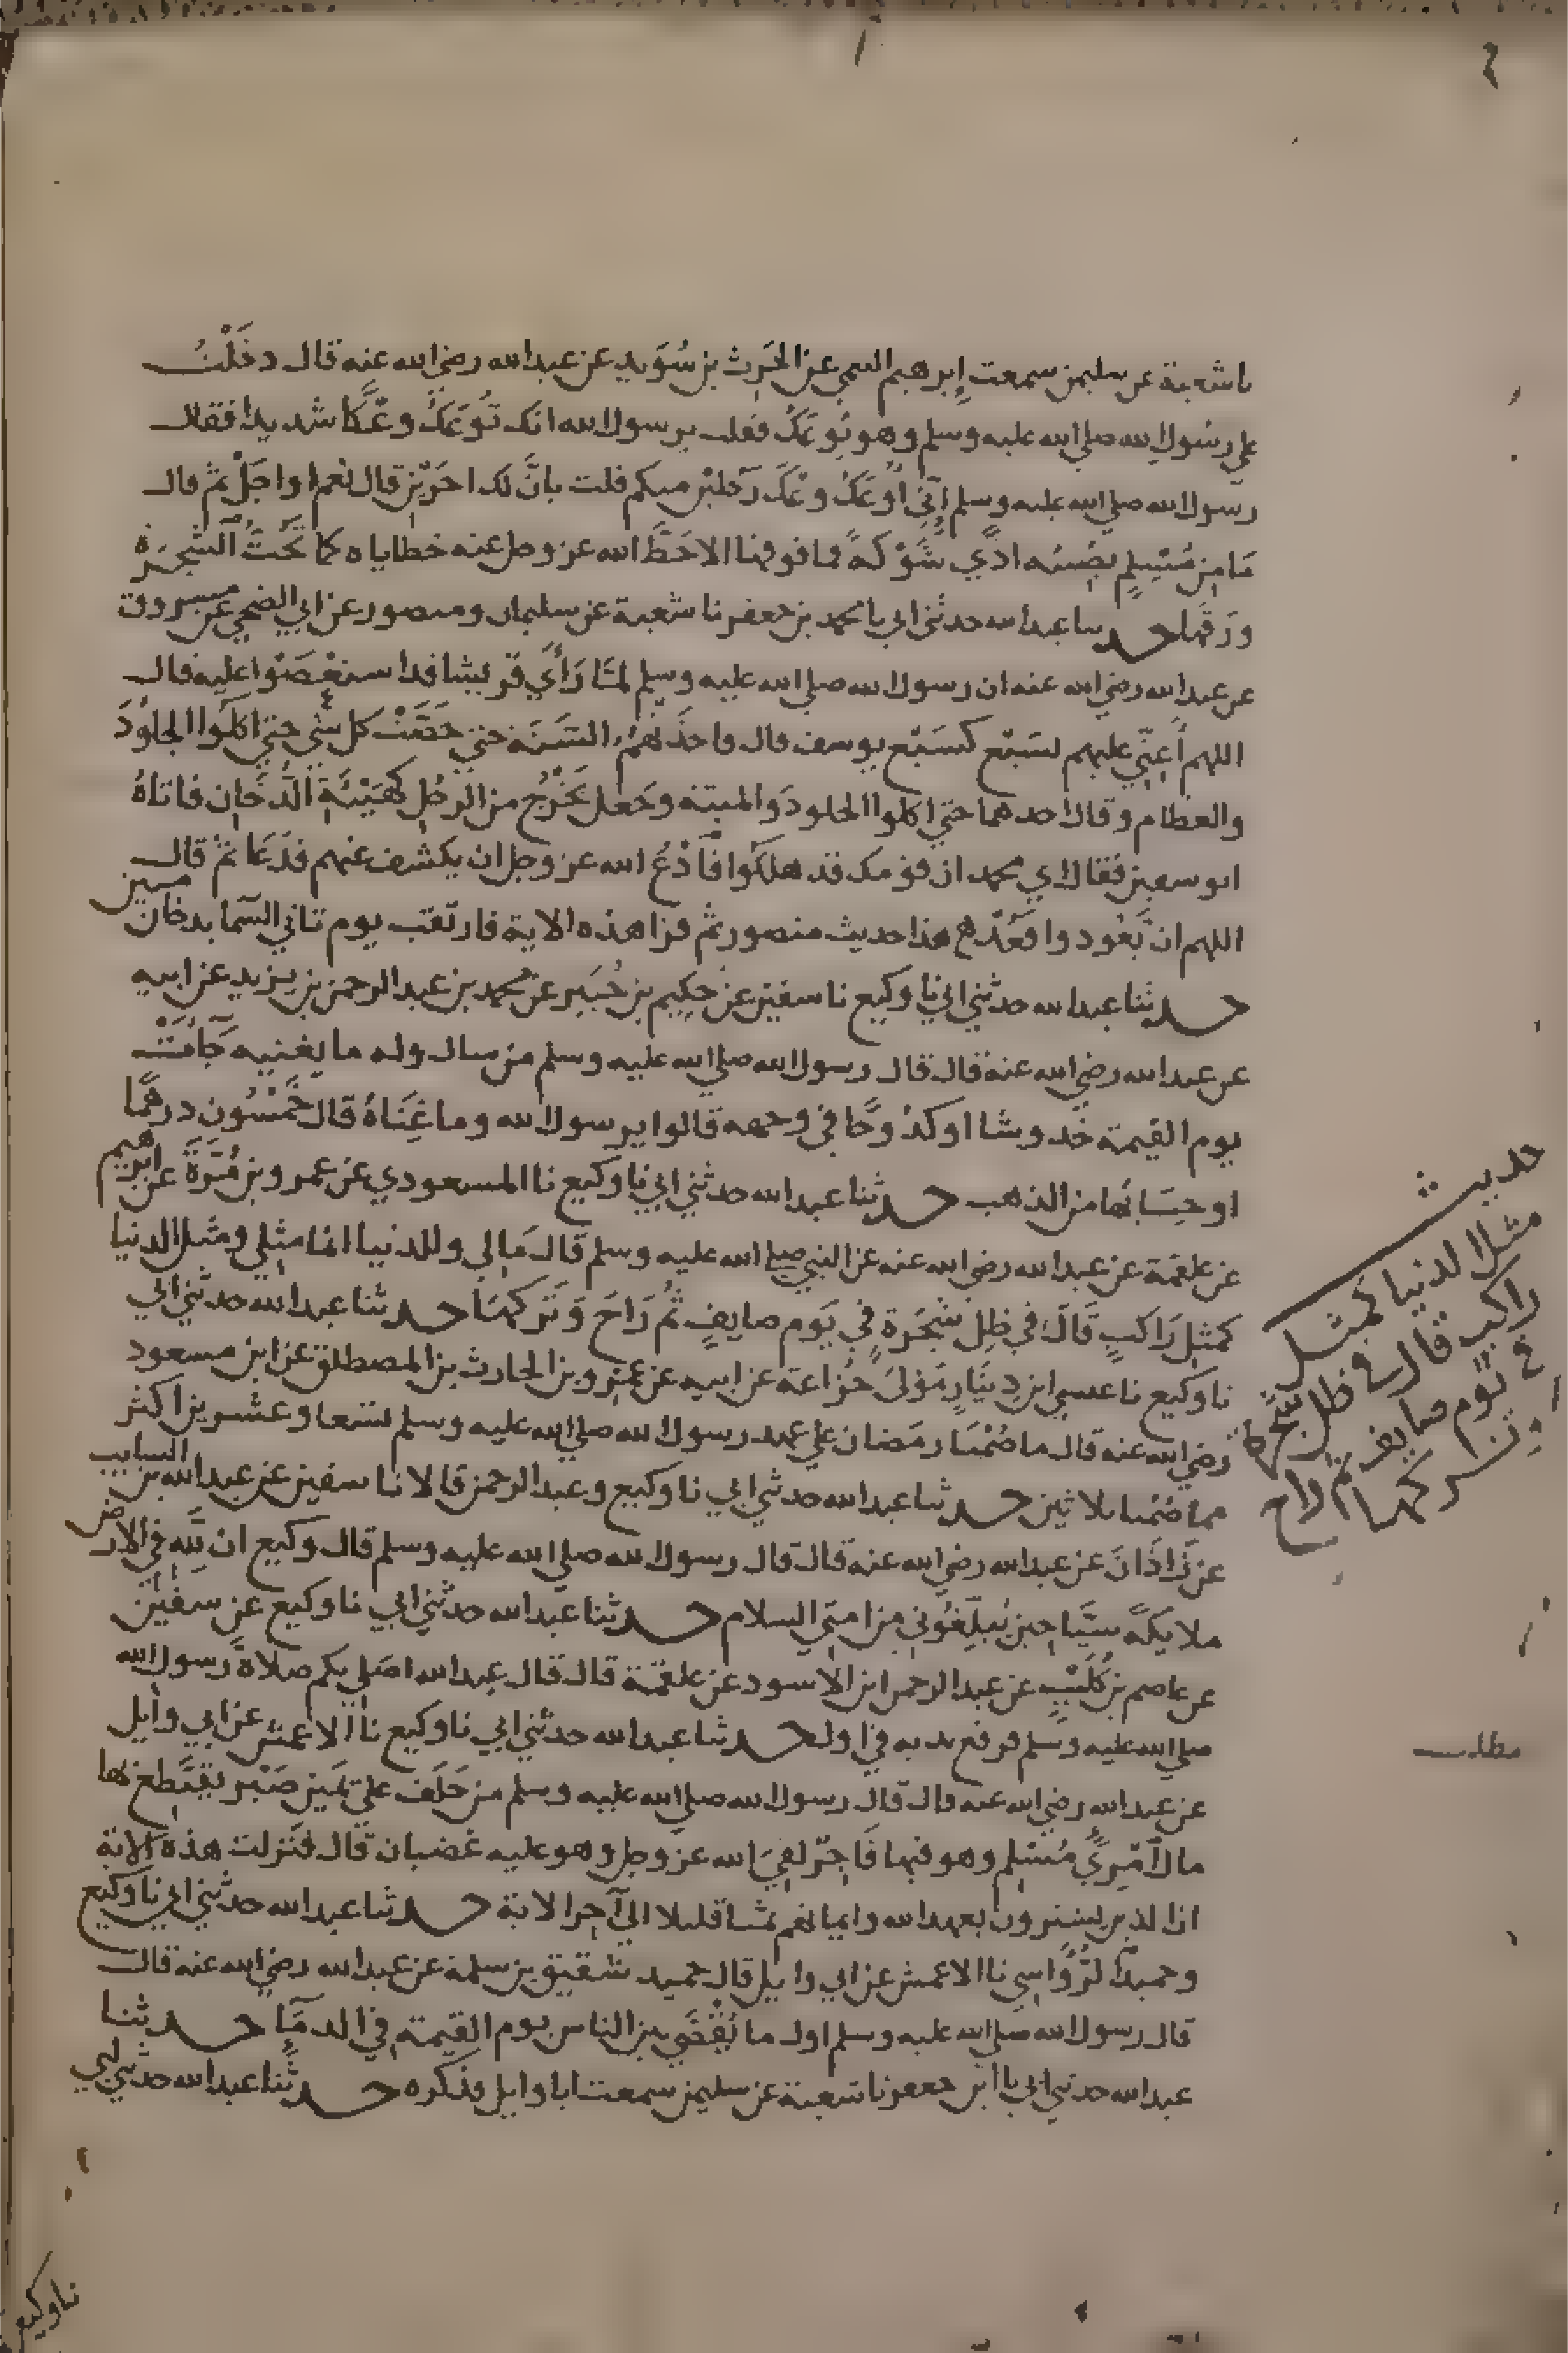 نا شعبة عن سليمن سمعت إبرهيم التيمي عن الحرث بن سُوَيد عن عبدالله رضي الله عنه قال دخَلْتُ
علي رسُولِ الله صلي الله عليه وسلم وهو يُوعَكُ فقلت يرسول الله انك تُوعَكُ وعْكًا شديدا فقال
رسول الله صلي الله عليه وسلم إنّي أُوعَكُ وعْكَ رَجلين منكم قلت بانَّ لك اجرَين قال نعم او اجَلْ ثم قال
مَا مِن مُسْلِمٍ يصُيبُه اذًي شَوْكةً فما فوقها الا حَطَّ الله عز وجل عنه خطاياه كما تَحُتُّ الشجرة
ورَقَها حدثنا عبدالله حدثني ابي نا محمد بن جعفر نا شعبة عن سليمان ومنصور عن ابي الضحي عن مسروق
عن عبدالله رضي الله عنه ان رسول الله صلي الله عليه وسلم لمّا رَأَي قريشا قد استعْصَوْا عليه قال
اللهم أعِنّي عليهم بسَبْع كسَبْع يوسف قال فاخذَتْهُمُ السَنَة حتي حَصَّتْ كل شي حتي اكلُوا الجلُودَ
والعظام وقال احدهما حتي اكلوا الجلودَ والميتة وجَعل يَخْرُج من الرجُلِ كهَيْئَةِ الدُّخَانِ فاتاهُ
ابو سفين فقال اي محمد ان قومك قد هلكُوا فَادْعُ الله عز وجل ان يكشف عنهم فدَعَا ثم قال
اللهم ان يَعُودوا فَعُدْ هذا حديث منصور ثم قرا هذه الاية فارتقب يوم تاتي السّما بدخان مبين
حدثنا عبدالله حدثني ابي نا وكيع نا سفين عن حكِيم بن جُبَير عن محمد بن عبدالرحمن بن يزيد عن ابيه
عن عبدالله رضي الله عنه قال قال رسول الله صلي الله عليه وسلم من سال وله ما يغنيه جَآءَتْ
يوم القيمة خُدوشا او كدُوحًا في وجهه قالوا يرسول الله وما غِنَاهُ قال خَمْسُون درهمًا
او حِسَابُها من الذهب حدثنا عبدالله حدثني ابي نا وكيع نا المسعودي عن عمرو بن مُرَّةَ عن ابرهيم
عن علقمة عن عبدالله رضي الله عنه عن النبي صلي الله عليه وسلم قال مَا لي وللدنيا انما مثلي ومثل الدنيا
كمثل رَاكبٍ قَالَ في ظِل شجَرة في يَوم صايفٍ ثُم رَاحَ وتَركهَا حدثنا عبدالله حدثني ابي
نا وكيع نا عيسي ابن دِينَارٍ مَوْلَي خُزاعة عن ابيه عن عمرو بن الحارث بن المصطلق عن ابن مسعود
رضي الله عنه قال ما صُمْنا رمَضان علي عهد رسول الله صلي الله عليه وسلم تسعا وعشرين اكثر
مما صُمْنا ثلاثين حدثنا عبدالله حدثني ابي نا وكيع وعبدالرحمن قالا نا سفين عن عبدالله بن السايب
عن زَاذَانَ عن عبدالله رضي الله عنه قال قال رسول الله صلي الله عليه وسلم قال وكيع ان لله في الارض
ملايكةً سيَّاحِين يُبلِّغُوني مِن امتي السلام حدثنا عبدالله حدثني ابي نا وكيع عن سفين
عن عاصم بن كُلَيْبٍ عن عبدالرحمن ابن الاسود عن علقمة قال قال عبدالله اصلي بكم صلاة رسول الله
صلي الله عليه وسلم فرفع يديه في اول حدثنا عبدالله حدثني ابي نا وكيع نا الاعمش عن ابي وايل
عن عبدالله رضي الله عنه قال قال رسول الله صلي الله عليه وسلم من حَلَف علي يمين صَبْر يقتطع بها
مال امْرِئٍ مُسْلمٍ وهو فيها فَاجرٌ لقِيَ الله عز وجل وهو عليه غضبان قال فنزلت هذه الاية
ان الذين يشترون بعهد الله وايمانهم ثمنا قليلا الي آخر الاية حدثنا عبدالله حدثني ابي نا وكيع
وحميد الرُّوَّاسي نا الاعمش عن ابي وايل قال حميد شقيق بن سلمة عن عبدالله رضي الله عنه قال
قال رسول الله صلي الله عليه وسلم اول ما يُقْضَي بين الناس يوم القيمة في الدمآء حدثنا
عبدالله حدثني ابي نا ابن جعفر نا شعبة عن سليمن سمعت ابا وايل فذكره حدثنا عبدالله حدثني ابي
حديث
مثل الدنيا كمثل
راكب قال في ظل شجرة
في يوم صايف ثم راح
وتركها
مطلب
نا وكيع